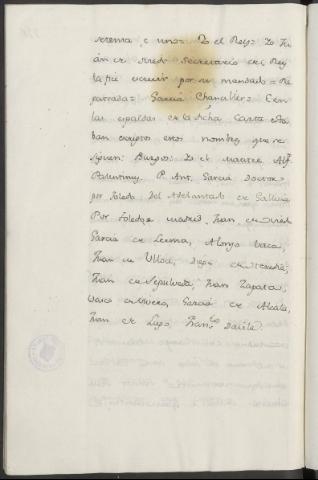 setenta, e uno = Yo el Rey = Yo Ju
án de Oviedo Secretario del Rey
la fice escrivir por su mandado = Re
gistrada = Garcia Chanciller = E en
las espaldas de la dicha Carta esta
ban escriptos estos nombres que se
siguen: Burgos: Yo el Maestre Alf.
Palentinus. P. Ant. Garcia Doctor =
por Toledo. Del Adelantado de Gallicia
Por Toledo = Madrid, Juan de Oviedo
Garcia de Lerma, Alonso Vaca,
Juan de Ulloa, Diego de
Juan de Sepulveda, Juan Zapata,
Garcia de Alcala,
Juan de Lugo, Fran.co Davila.